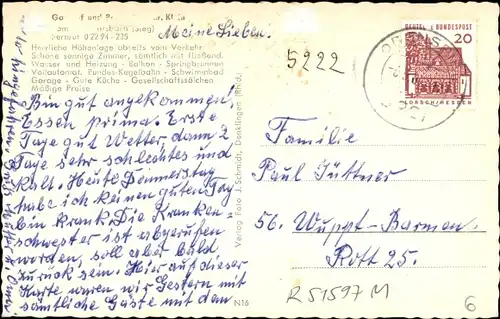 Meine Lieben.
Ruf 0 22 94 - 235
Herrliche Höhenlage abseits vom Verkehr
Schöne sonnige Zimmer, sämtlich mit fließend.
Wasser und Heizung - Balkon - Springbrunnen
Vollautomat. Bundes-Kegelbahn - Schwimmbad
Garage - Gute Küche - Gesellschaftssälchen
Mäßige Preise
Bin gut angekommen,
Essen prima. Erste
Tage gut Wetter, dann 2
Tage sehr schlechtes und
kalt. Heute Donnerstag
habe ich keinen guten Tag
bin krank. Die Kranken-
schwester ist abgerufen
worden, soll aber bald
zurück sein. Hier auf dieser
Karte waren wir Gestern mit
sämtliche Gäste mit den
Verlag Foto J. Schmidt, Denklingen (Rhld.)
N16
5222
DEUTSCHE BUNDESPOST
20
LORSCH/HESSEN
Familie
Paul Jüttner
56. Wuppt-Barmen.
Rott 25.
R 51597 M
6